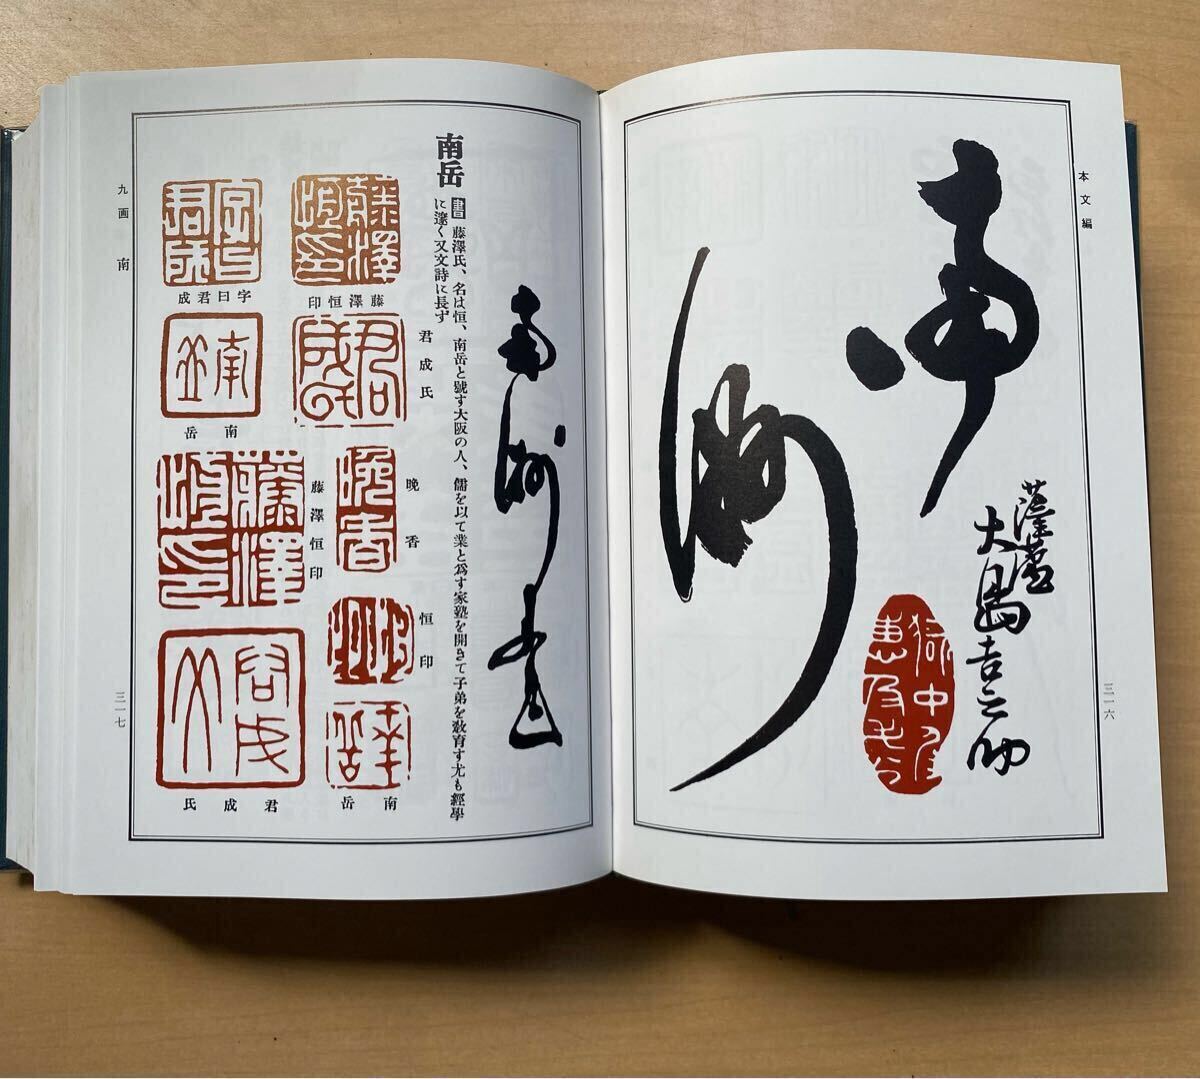 本文編
南洲
薩藩
大島吉之助
三一六
南洲書
南岳
書 藤澤氏、名は恒、南岳と號す大阪の人、儒を以て業と爲す家塾を開きて子弟を敎育す尤も經學
に邃く又文詩に長ず
藤澤恒印
字曰君成
君成氏
南岳
晩香
藤澤恒印
恒印
南岳
君成氏
九画 南
三一七